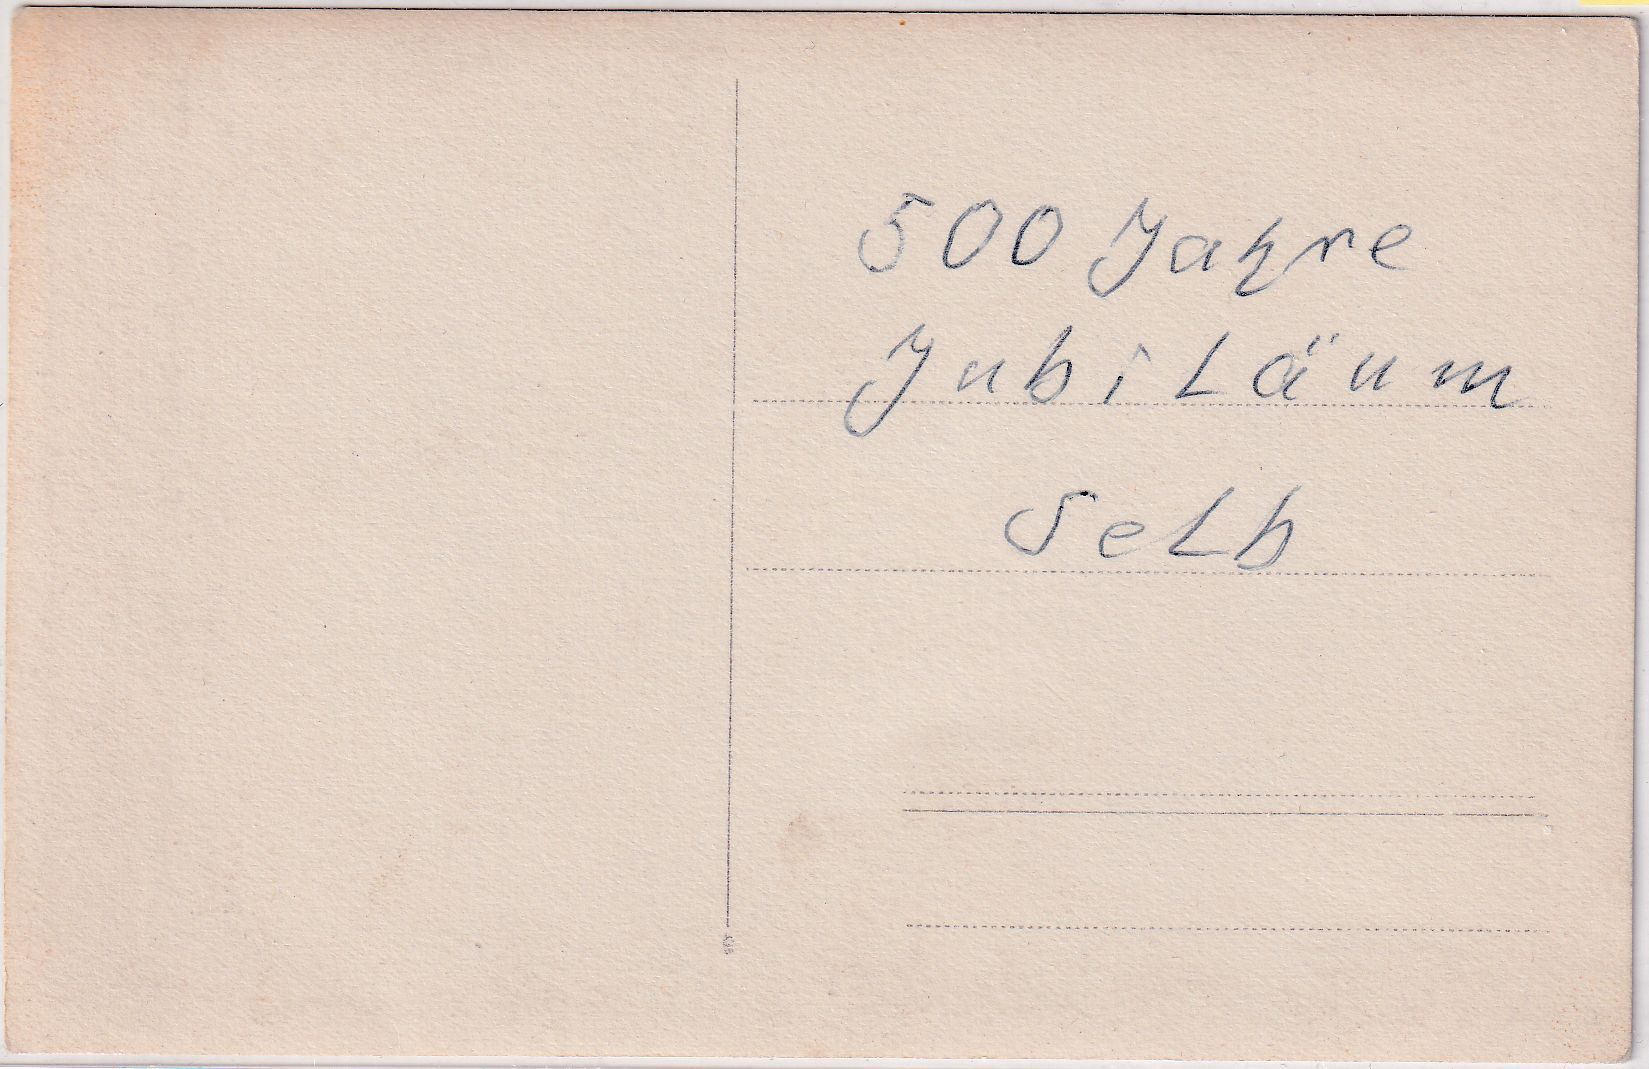 500 Jahre
Jubiläum
Selb